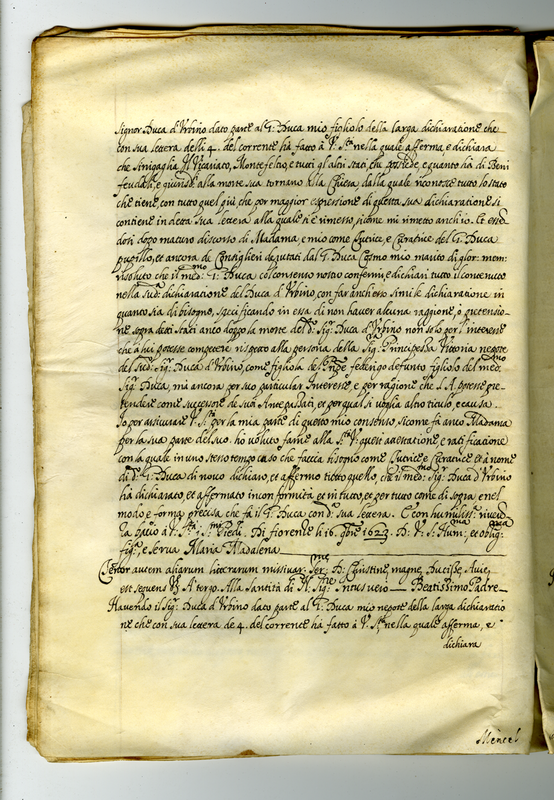 Signor Duca d'Urbino dato parte al G: Duca mio figliolo della larga dichiaratione che
con sua lettera delli 4. del corrente hà fatto à V. S.tà nella quale afferma, e dichiara
che Sinigaglia Il Vicariato, Montefeltro, e tutti gl'altri Stati, che possiede, e quanto hà di Beni
feudali, e giurisd.li alla morte sua tornano alla Chiesa, dalla quale riconosce tutto lo stato
che tiene, con tutto quel più, che per maggior espressione di questa sua dichiaratione si
contiene in detta sua lettera alla quale si è rimesso, sicome mi rimetto anch'io. Et essen
dosi dopo maturo discorso di Madama, e mio come Tutrice, e Curatrice del G: Duca
pupillo, et ancora de Consiglieri deputati dal G: Duca Cosmo mio marito di glor: mem:
risoluto che il med.mo G: Duca col consenso nostro confermi, e dichiari tutto il contenuto
nella sud.a dichiaratione del Duca d'Urbino, con far anch'esso simile dichiaratione in
quanto sia di bisogno, specificando in essa di non haver alcuna raggione, ò pretensio-
ne sopra detti Stati anco doppo la morte del d.o Sig.r Duca d'Urbino non solo per l'interesse
che à lui potesse competere rispetto alla persona della Sig.ra Principessa Vittoria nepote
del sud.o Sig.r Duca d'Urbino, come figliola del Prñpe federigo defunto figliolo del med.mo
Sig.r Duca, mà ancora per suo particular Interesse, e per ragione che S. A. potesse pre-
tendere come successore de suoi Antepassati, et per qual si voglia altro titulo, e causa.
Io per assicurare V. S.tà per la mia parte di questo mio consenso, sicome fà anco Madama
per la sua parte del suo. hò voluto farne alla S.tà V. questa attestatione, e ratificatione
con la quale in uno stesso tempo caso che faccia bisogno come Tutrice, e Curatrice et à nome
di d.o G: Duca di nuovo dichiaro, et affermo tutto quello, che il med.mo Sig.r Duca d'Urbino
hà dichiarato, et affermato in conformità et in tutto, et per tutto come di sopra e nel
modo, e forma precisa che fà il G: Duca con d.a sua lettera. E con humiliss.a riveren
za bacio à V. S.tà i S.mi Piedi. Di fiorenze li 16. 9bre 1623. D. V. S. Hum.ma, et oblig.ma
fig.la, e Serva Maria Madalena
Tenor autem aliarum literarum missivar: Ser.me D: Christine, magne Ducisse, Aue,
est sequens V3 A' tergo. Alla Santità di N. Sig.re Intus vero — Beatissimo Padre
Havendo il Sig.r Duca d'Urbino dato parte al G: Duca mio nepote della larga dichiaratio
ne che con sua lettera de 4. del corrente hà fatto à V. S.tà nella quale afferma, e
dichiara